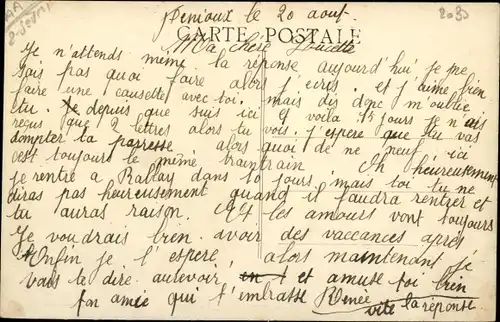 penioux le 20 aout.
2035
CARTE POSTALE
Ma chère Poucette
Je n'attends même la réponse aujourd'hui je ne
sais pas quoi faire alors j'écris. et j'aime bien
faire une causette avec toi. mais dis donc m'oublie
tu. depuis que suis ici et voila 15 jours je n'ais
reçus que 2 lettres alors tu vois. j'espère que tu vas
dompter ta paresse alors quoi de ne neuf, ici
c'est toujours le même traintrain. Oh heureusement
je rentre à Ballay dans 10 jours, mais toi tu ne
diras pas heureusement quand il faudra rentrer et
tu auras raison. Et les amours vont toujours
Je voudrais bien avoir des vaccances après
Enfin je l'espère, alors maintenant je
vais te dire aurevoir, et amuse toi bien
ton amie qui t'embrasse Renée
vite la réponse.